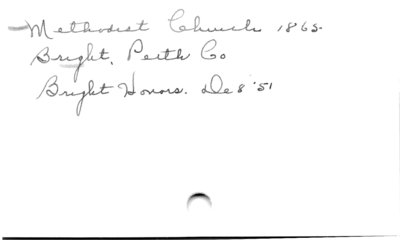 Methodist Church 1865-
Bright, Perth Co
Bright Honors. De 8 '51